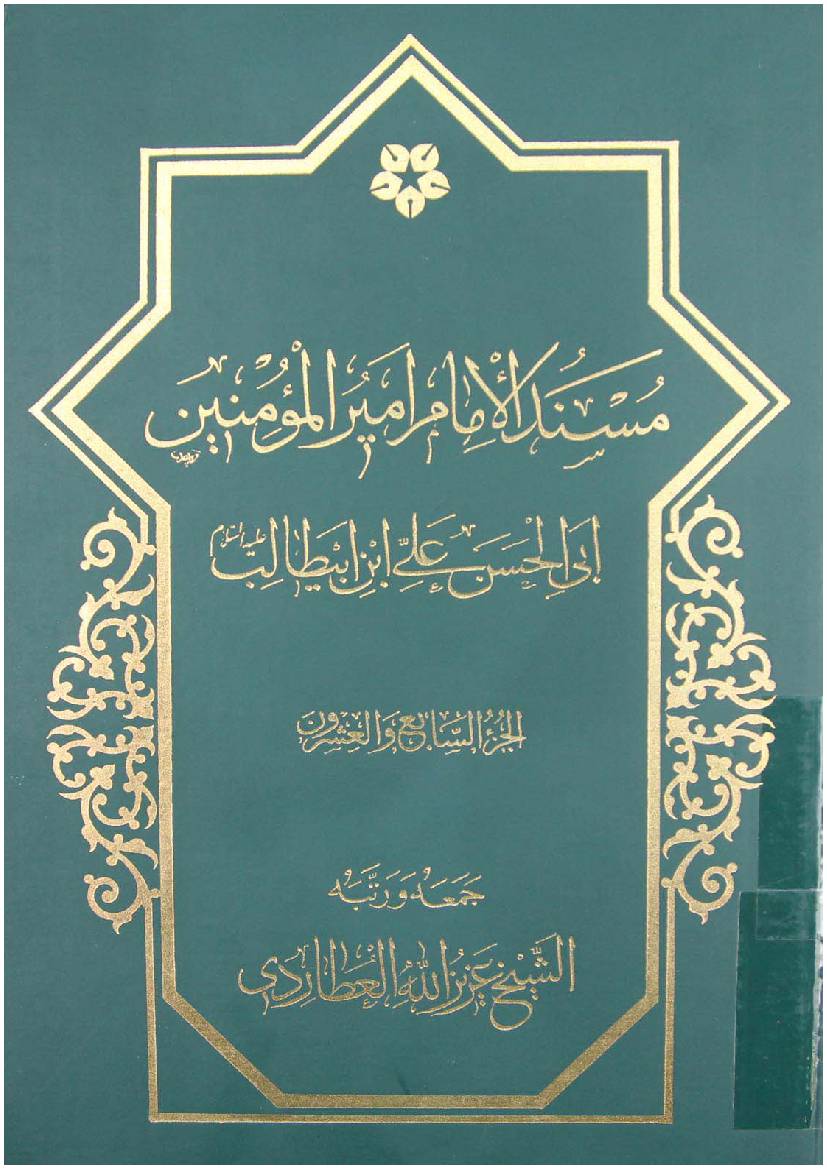 مُسْنَدُ الْأِمٰامِ اَميرُ الْمُؤْمِنينَ
اَبی الْحَسَنِ عَلِیِّ ابْنِ ابیطالِب علیه السلام
الجُزءُ السّابِعُ وَالعِشرون
جَمَعَهُ وَ رَتَّبَهُ
الشَّيْخُ عَزيزُ اللّٰهِ الْعُطارِدی